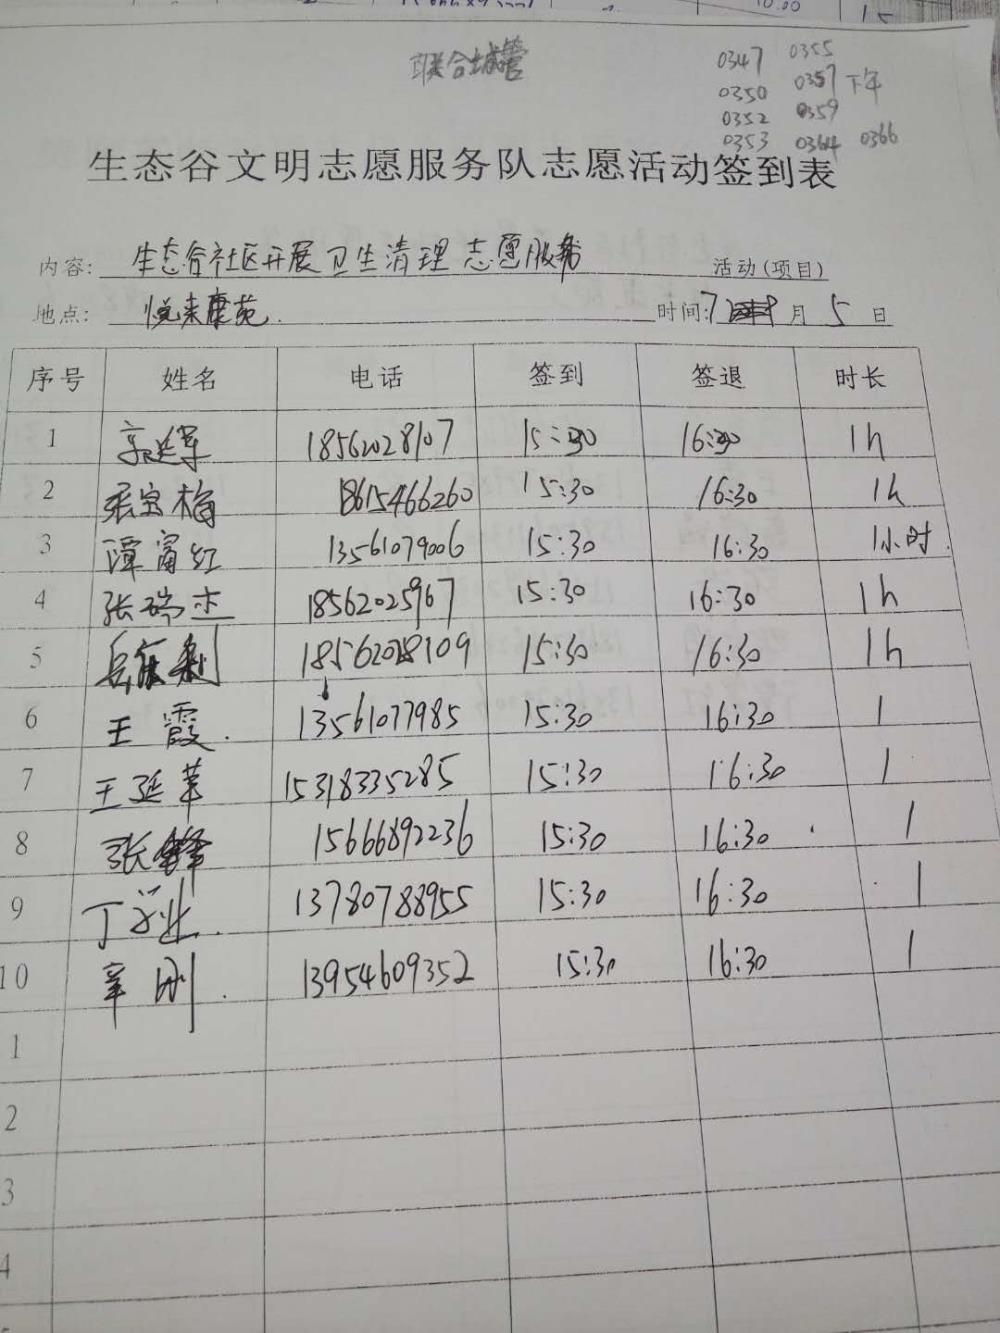 联合城管
0347 0355
0350 0357 下午
0352 0359
0353 0364 0366
生态谷文明志愿服务队志愿活动签到表
内容: 生态谷社区开展卫生清理志愿服务 活动(项目)
地点: 悦来康苑. 时间: 7 月 5 日
序号 姓名 电话 签到 签退 时长
1 18562028107 15:30 16:30 1h
2 张宝梅 18615466260 15:30 16:30 1h
3 谭富红 13561079006 15:30 16:30 1小时.
4 张瑞杰 18562025967 15:30 16:30 1h
5 18562028109 15:30 16:30 1h
6 王霞. 13561077985 15:30 16:30 1
7 王延苹 15318335285 15:30 16:30 1
8 张锋 15666892236 15:30 16:30 1
9 丁 13780788955 15:30 16:30 1
10 辛刚. 13954609352 15:30 16:30 1
1
2
3
4